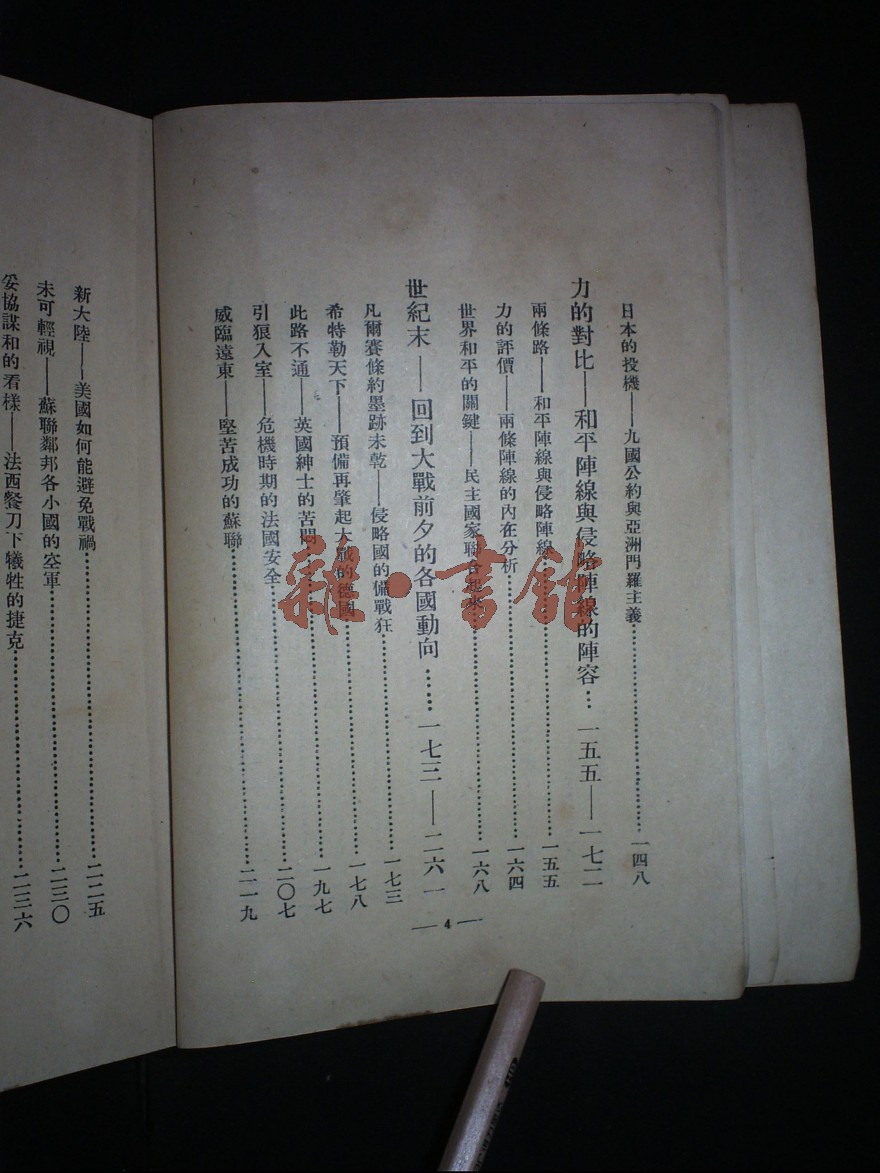 日本的投機——九國公約與亞洲門羅主義……一四八
力的對比——和平陣線與侵略陣線的陣容…一五五——一七二
兩條路——和平陣線與侵略陣線……一五五
力的評價——兩條陣線的內在分析……一六四
世界和平的關鍵——民主國家聯合起來……一六八
世紀末——回到大戰前夕的各國動向……一七三——二六一
凡爾賽條約墨跡未乾——侵略國的備戰狂……一七三
希特勒天下——預備再肇起大戰的德國……一七八
此路不通——英國紳士的苦悶……一九七
引狼入室——危機時期的法國安全……二〇七
威臨遠東——堅苦成功的蘇聯……二一九
— 4 —
新大陸——美國如何能避免戰禍……二二五
未可輕視——蘇聯鄰邦各小國的空軍……二三〇
妥協謀和的看樣——法西餐刀下犧牲的捷克……二三六
雜·書館